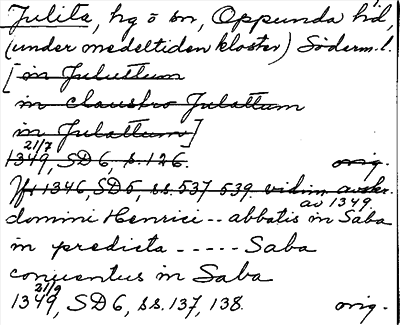 Julita, hg o sn, Oppunda hd,
(under medeltiden kloster) Söderm. l.
[in Julettum
in claustro Julattum
in Julattum]
21/7
1349, SD 6, s. 126. orig.
Jfr 1346, SD 5, ss. 537 539. vidim. avskr.
av 1349.
domini Henrici -- abbatis in Saba
in predicta ----- Saba
conuentus in Saba
21/9
1349, SD 6, ss. 137, 138. orig.